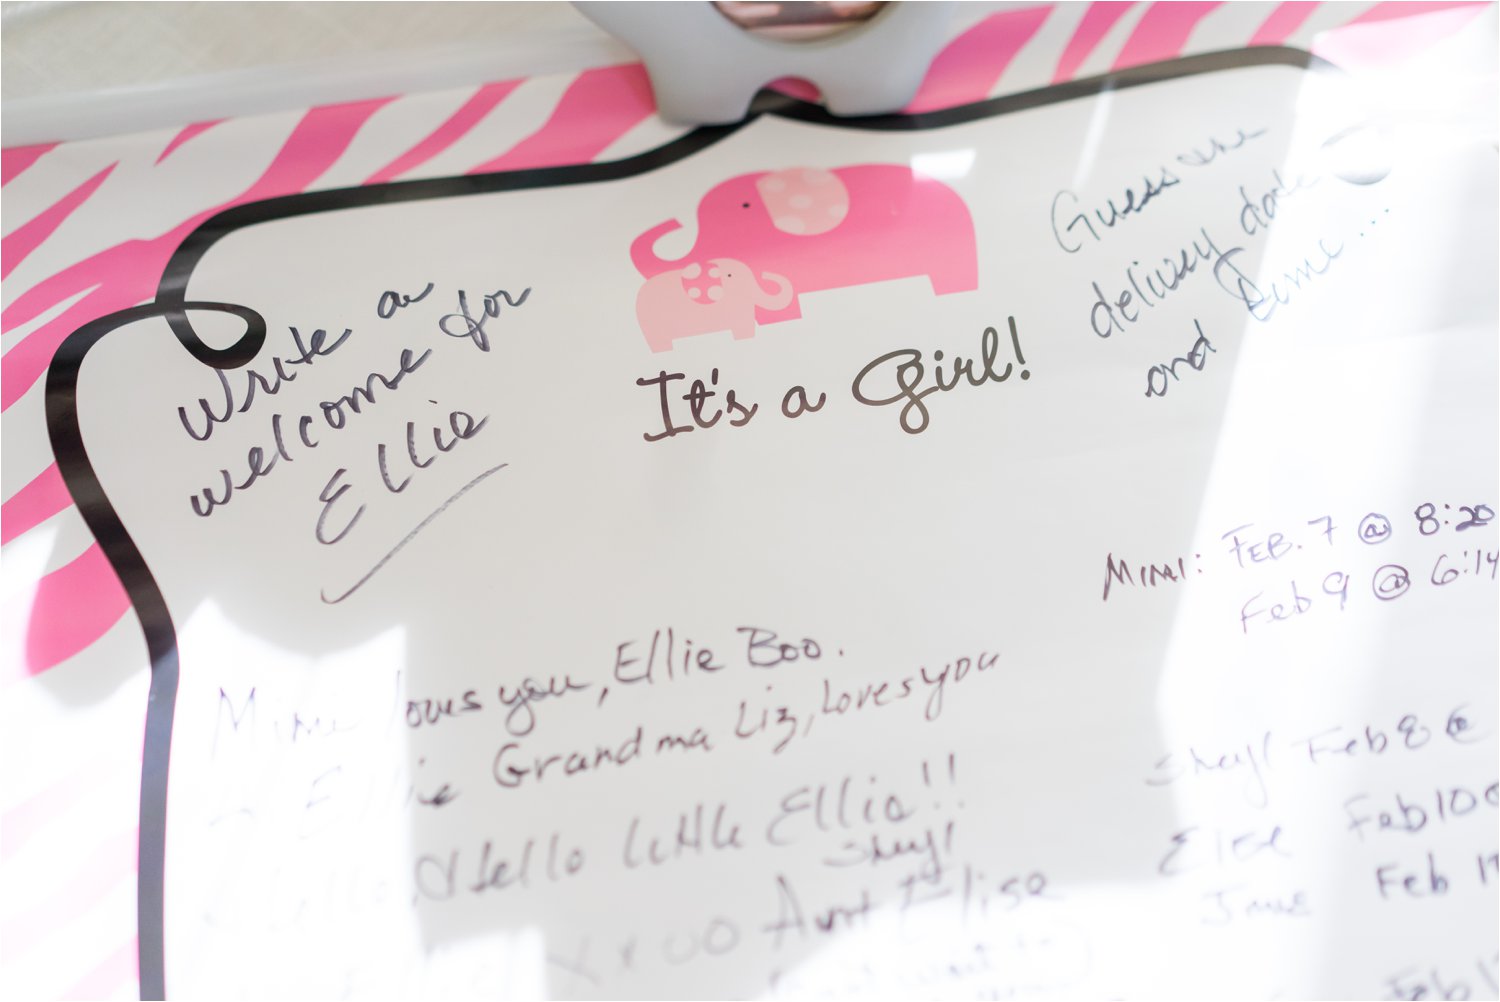 Write a
welcome for
Ellie
It's a Girl!
Guess the
delivery date
and time...
Mimi: Feb. 7 @ 8:20
Feb 9 @ 6:14
Mimi loves you, Ellie Boo.
Ellie Grandma Liz, Loves you
Hello, Hello little Ellie!!
Sheryl
XxOO Aunt Elise
want to
Sheryl Feb 8 @
Elise Feb 10 @
Feb
Feb